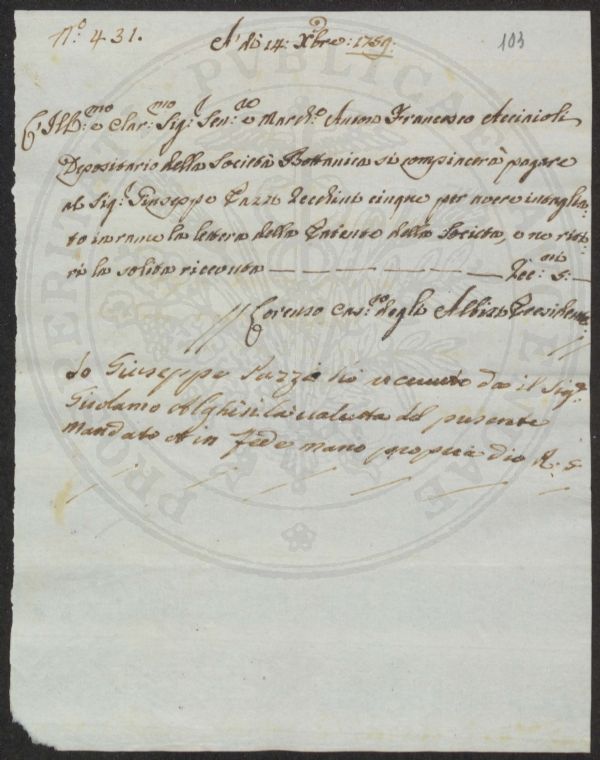 N.o 431.
A' di 14: Xbre: 1759.
103
Ill:mo e Clar:mo Sig:r Sen:re e March:e Anton Francesco Acciaioli
Depositario della Società Bottanica si compiacerà pagare
al Sig:r Giuseppe Pazzi Zecchini cinque per avere intaglia-
to in rame la lettera della Patente della Società, e ne riti-
ri la solita ricevuta — — — — — — Zec:ni 5:—
// Lorenzo degli Albizi Presidente
Io Giuseppe Pazzi ho ricevuto da il Sig:re
Girolamo Alghisi la valuta del presente
Mandato et in fede mano propria dico Z: 5
PROSPERITATI PUBLICAE AUGENDAE